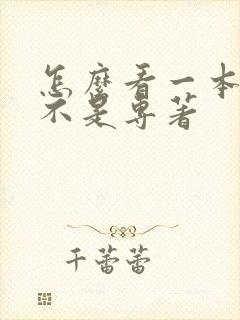 怎麼看一本
不是專著
千蕾蕾